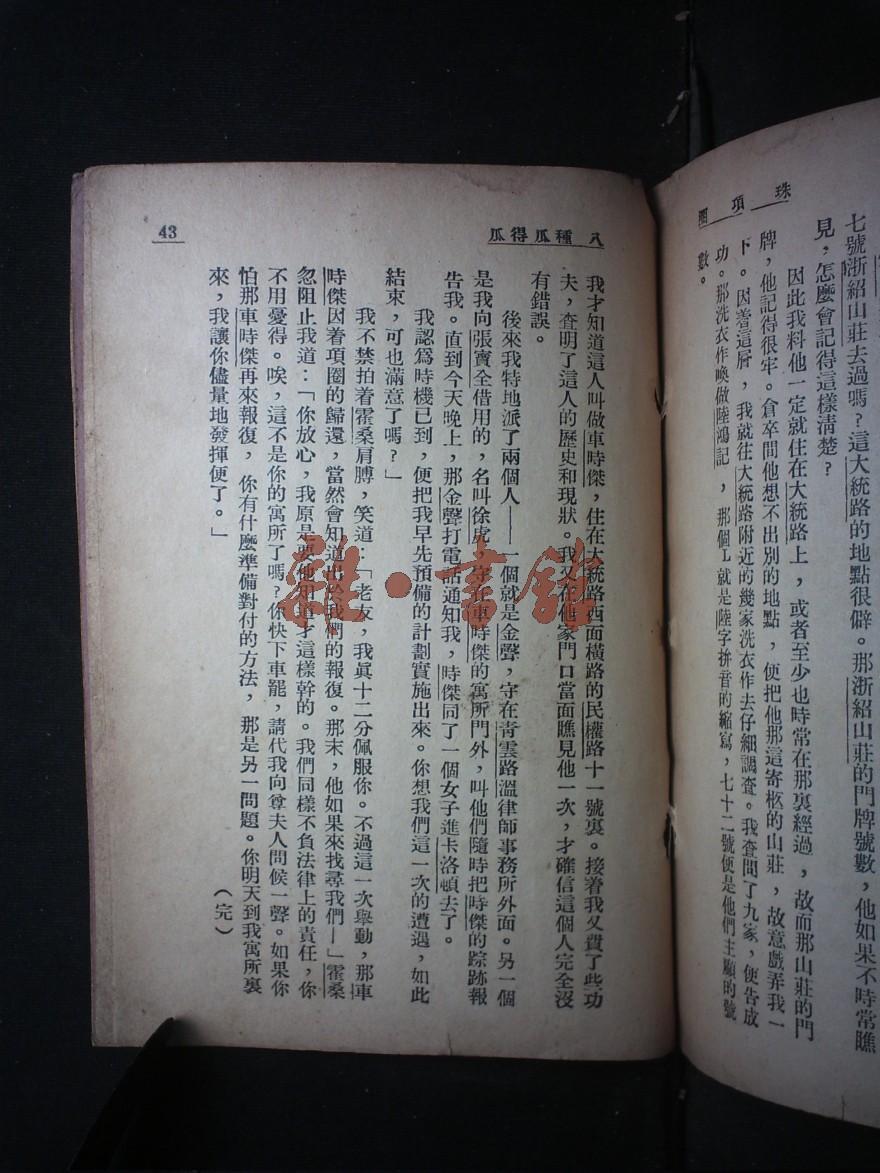 珠項圈
七號浙紹山莊去過嗎?這大統路的地點很僻。那浙紹山莊的門牌號數,他如果不時常瞧
見,怎麼會記得這樣清楚?
因此我料他一定就住在大統路上,或者至少也時常在那裏經過,故而那山莊的門
牌,他記得很牢。倉卒間他想不出別的地點,便把他那這寄柩的山莊,故意戲弄我一
下。因着這層,我就往大統路附近的幾家洗衣作去仔細調查。我查問了九家,便告成
功。那洗衣作喚做陸鴻記,那個L就是陸字拼音的縮寫,七十二號便是他們主顧的號
數。
八 種瓜得瓜
43
我才知道這人叫做車時傑,住在大統路西面橫路的民權路十一號裏。接着我又費了些功
夫,查明了這人的歷史和現狀。我又在他家門口當面瞧見他一次,才確信這個人完全沒
有錯誤。
後來我特地派了兩個人——一個就是金聲,守在青雲路溫律師事務所外面。另一個
是我向張寶全借用的,名叫徐虎,守在車時傑的寓所門外,叫他們隨時把時傑的踪跡報
告我。直到今天晚上,那金聲打電話通知我,時傑同了一個女子進卡洛頓去了。
我認爲時機已到,便把我早先預備的計劃實施出來。你想我們這一次的遭遇,如此
結束,可也滿意了嗎?」
我不禁拍着霍桑肩膊,笑道:「老友,我眞十二分佩服你。不過這一次舉動,那車
時傑因着項圈的歸還,當然會知道出於我們的報復。那末,他如果來找尋我們—」霍桑
忽阻止我道:「你放心,我原是要他知道才這樣幹的。我們同樣不負法律上的責任,你
不用憂得。唉,這不是你的寓所了嗎?你快下車罷,請代我向尊夫人問候一聲。如果你
怕那車時傑再來報復,你有什麼準備對付的方法,那是另一問題。你明天到我寓所裏
來,我讓你儘量地發揮便了。」
(完)
雜·書館